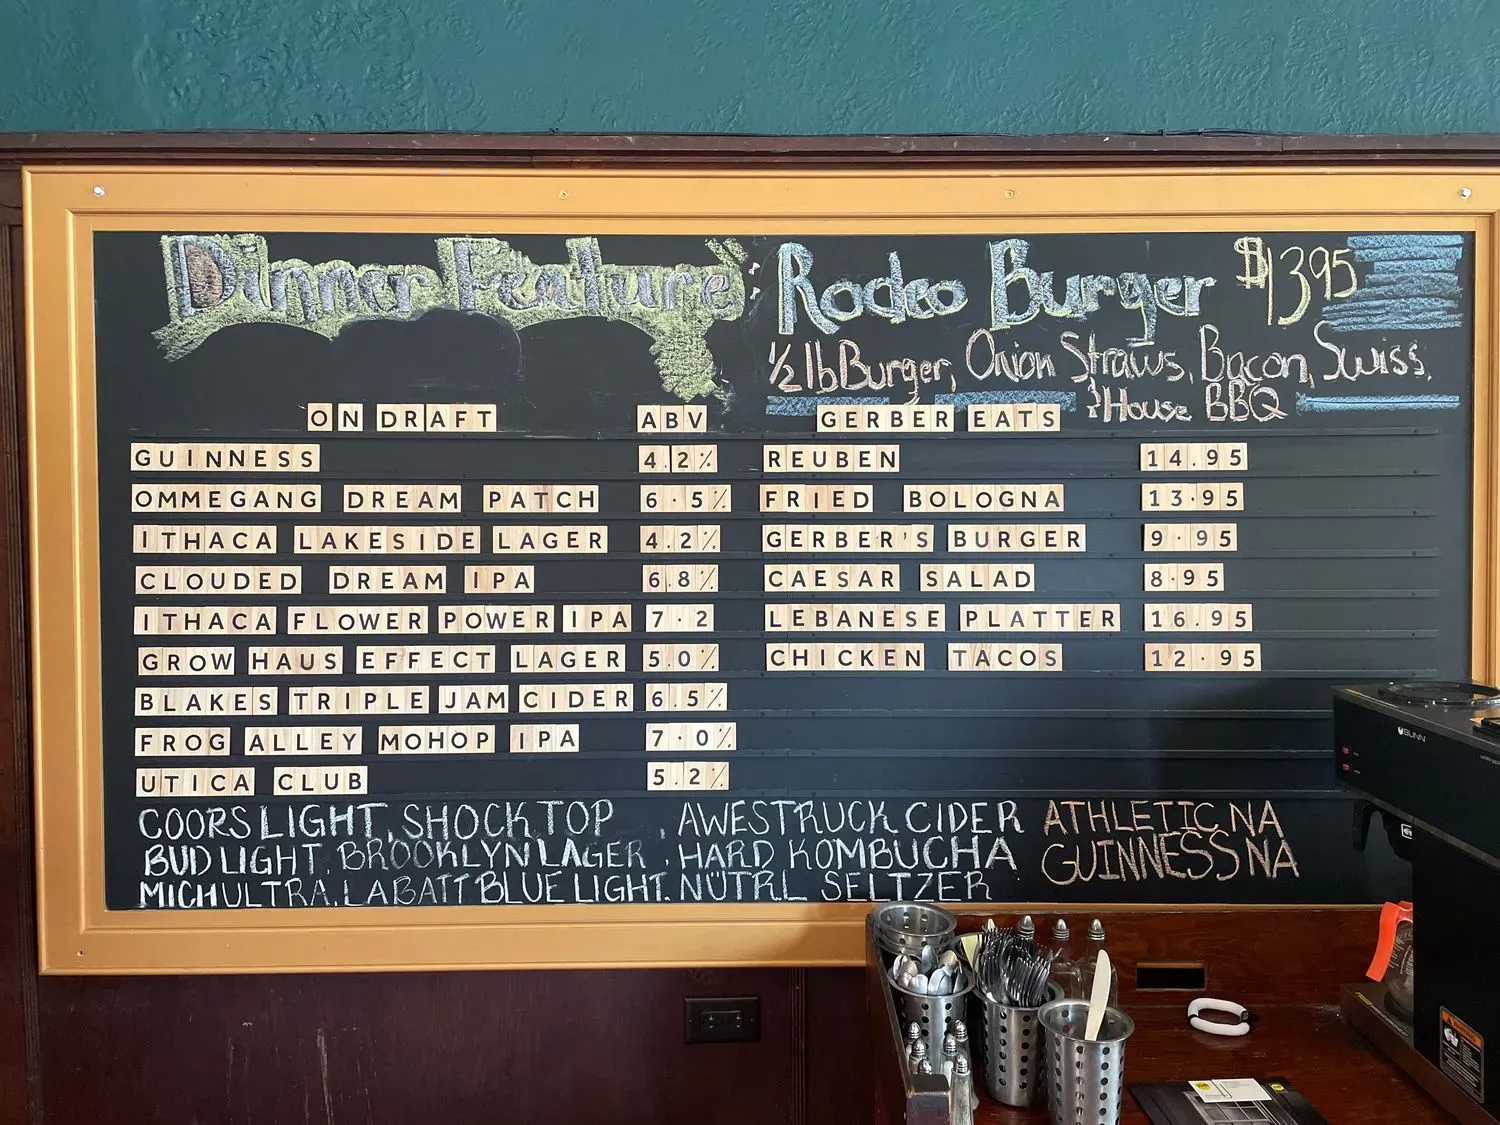 Dinner Feature: Rodeo Burger $13.95
1/2 lb Burger, Onion Straws, Bacon, Swiss,
& House BBQ
ON DRAFT ABV GERBER EATS
GUINNESS 4.2% REUBEN 14.95
OMMEGANG DREAM PATCH 6.5% FRIED BOLOGNA 13.95
ITHACA LAKESIDE LAGER 4.2% GERBER'S BURGER 9.95
CLOUDED DREAM IPA 6.8% CAESAR SALAD 8.95
ITHACA FLOWER POWER IPA 7.2 LEBANESE PLATTER 16.95
GROW HAUS EFFECT LAGER 5.0% CHICKEN TACOS 12.95
BLAKES TRIPLE JAM CIDER 6.5%
FROG ALLEY MOHOP IPA 7.0%
UTICA CLUB 5.2%
COORS LIGHT, SHOCK TOP, AWESTRUCK CIDER ATHLETIC NA
BUD LIGHT, BROOKLYN LAGER, HARD KOMBUCHA GUINNESS NA
MICH ULTRA, LABATT BLUE LIGHT, NÜTRL SELTZER
BUNN